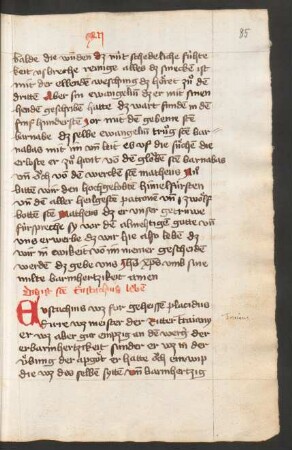 85
balde die winden dz mit schedeliche fuhte
keit vsbreche reinige alles dz smecken ist
mit der ellenden wesching dz höret zů dem
dritten Aber sin ewangeliū dz er mit sinen
henden geschriben hatte dz wart funden in dē
fünf hundersten Jor mit dem gebeine sēt
barnabe dz selbe ewangeliū trůg sēt bar-
nabas mit im vn̄ leit es vf die suchē die
erloste er zů hant vō dē gloubē sēt barnabas
vn̄ öch vō dē wercke sēt matheus Nū
bittē wir den hochgelobtē himelfürsten
vn̄ dē aller heilgestē patronē vn̄ zwölf
botten sēt Matheus dz er vnser getruwe
fürspreche sy vor dē almehtigen gotte vn̄
vns erwerbe dz wir hie also lebē dz
wir in ewikeit vō im niemer gescheidē
werdēt dz gebe vns ihs xps vmb sine
milte barmhertzikeit amen
Dis ist sēt Eustachius lebē
Eustachius wz vor geheissen placidus
vn̄ wz meister der Ritter traiani
er wz aber gar emzig an dē wercke der
erbarmhertzikeit sunder er wz in der
übung der apgöt er hatte öch ein wip
die wz des selben sitten vn̄ barmhertzig